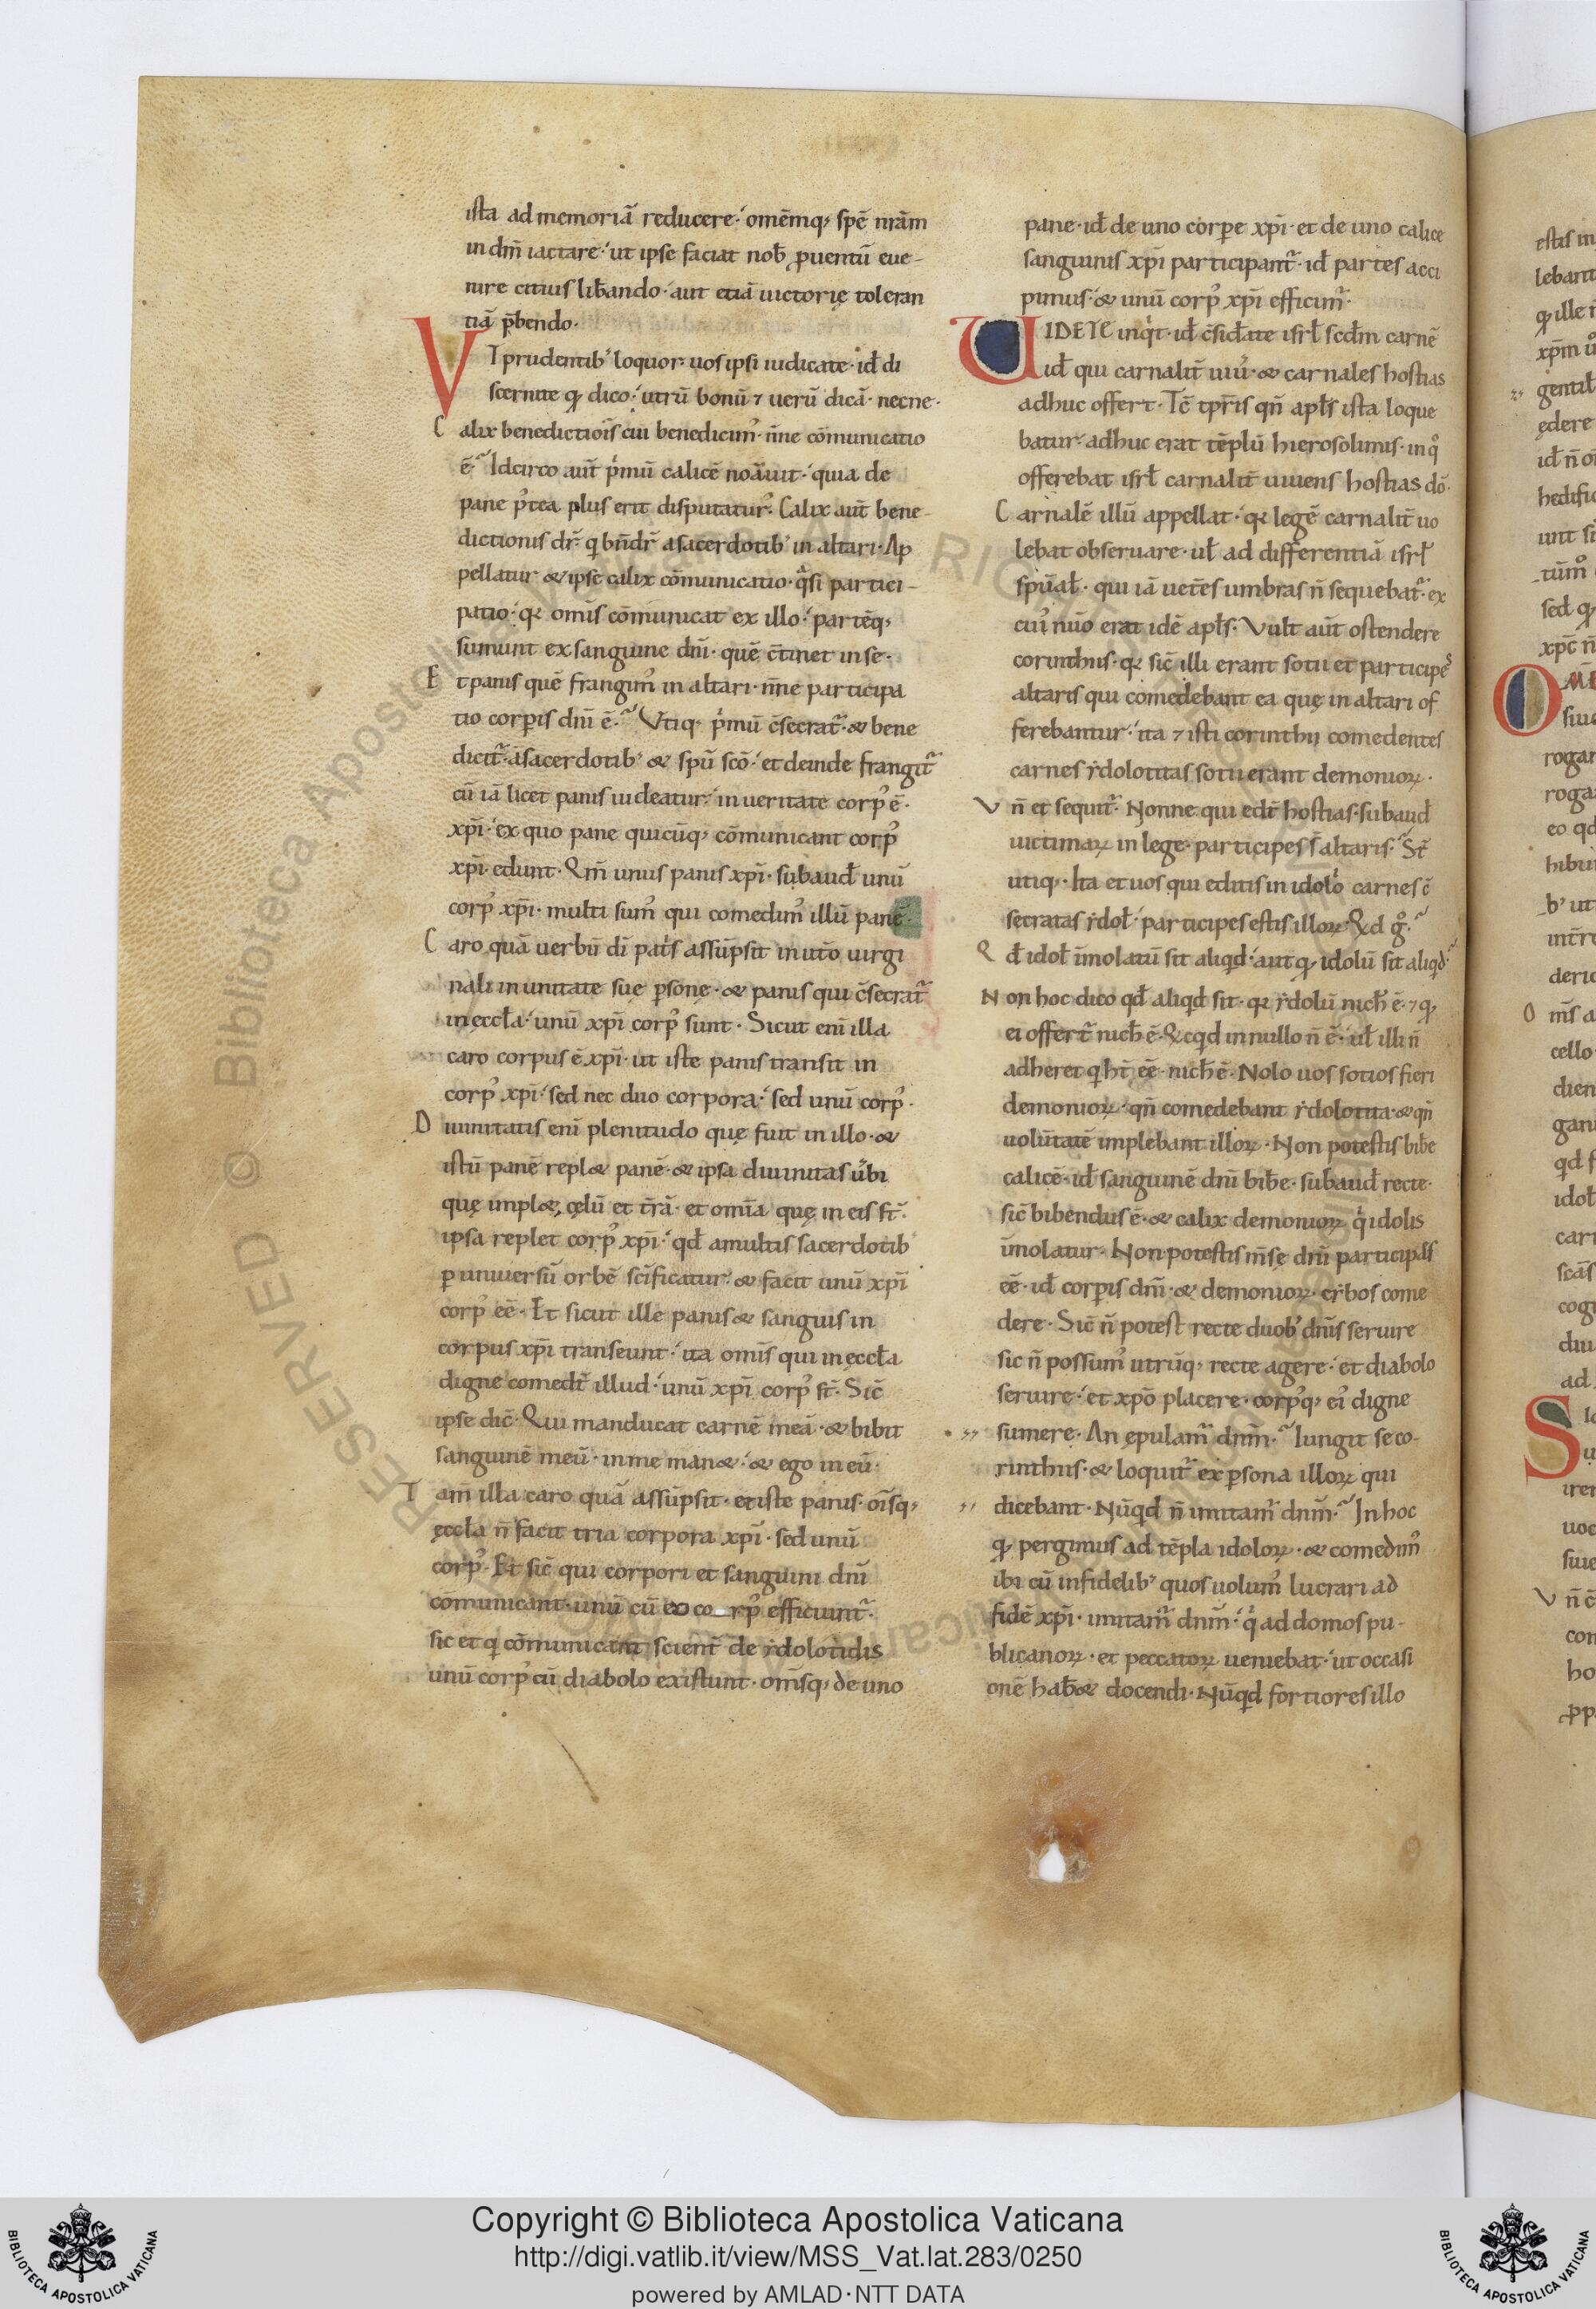 ista ad memoriā reducere· omēmq; spē nrām
in dm̄ iactare· ut ipse faciat nob̄ ꝓuentū eue-
nire citius lib̄ando· aut etiā uictorię toleran
tiā p̄bendo·
VT prudentib' loquor· uos ipsi iudicate· id̄ di
scernite qđ dico· utrū bonū ⁊ uerū dicā· necne·
Calix benedictiōis cui benedicim'· n̄ne cōmunicatio
ē· Idcirco aut̄ p̄mū calicē noāuit· quia de
pane p̄tea plus erit disputatur'. Calix aut̄ bene-
dictionis dr̄· q bn̄dr̄ a sacerdotib' in altari· Ap
pellatur & ipse calix cōmunicatio· q̄si partici-
patio· qꝛ om̄s cōmunicat ex illo· partēq;
sumunt ex sanguine dn̄i· quē c̄tinet in se·
Et panis quē frangim' in altari· n̄ne participa
tio corpis dn̄i ē· Vtiq; p̄mū c̄secrat̄· & bene
dicit̄· a sacerdotib' & spū scō· et deinde frangit̄
cū iā licet panis uideatur· in ueritate corp' ē·
xp̄i· ex quo pane quicūq; cōmunicant corp'
xp̄i edunt· Qm̄ unus panis xp̄i· subaud̄ unū
corp' xp̄i· multi sum' qui comedim' illū panē·
Caro quā uerbū dī pat̄s assūpsit in utō uirgi
nali in unitate sue p̱sonę· & panis qui c̄secrat̄
in ęccl̄a· unū xp̄i corp' sunt· Sicut enī illa
caro corpus ē xp̄i· ut iste panis transit in
corp' xp̄i· sed nec duo corpora· sed unū corp'·
Diuinitatis enī plenitudo quę fuit in illo· &
istū panē repl& panē· & ipsa diuinitas ūbi
quę impl&, cęlū et t̄rā· et om̄ia quę in eis st̄·
ipsa replet corp' xp̄i· qd̄ a multis sacerdotib'
ꝑ uniuersū orbē sc̄ificatur· & facit unū xp̄i
corp' eē· Et sicut ille panis & sanguis in
corpus xp̄i transeunt· ita om̄s qui in ęccl̄a
digne comedt̄ illud· unū xp̄i corp' st̄· Sic̄
ipse dic̄· Qui manducat carnē meā· & bibit
sanguinē meū· in me man&· & ego in eū·
Tam̄ illa caro quā assūpsit· et iste panis· oīsq;
ęccl̄a n̄ facit tria corpora xp̄i· sed unū
corp'· Et sic̄ qui corpori et sanguini dn̄i
cōmunicant· unū cū eo co rp' efficiunt̄·
sic et q cōmunicant scient̄ de ydolotidis
unū corp' cū diabolo existunt· om̄sq; de uno
pane· id̄ de uno corpe xp̄i· et de uno calice
sanguinis xp̄i participant̄· id̄ partes acci
pimus· & unū corp' xp̄i efficim̄·
UIDETE inq̇t· id̄ c̄sid̄ate isrl̄ scd̄m carnē
id̄ qui carnalit̄ uiu̇· & carnales hostias
adhuc offert· Tc̄ tp̄ris qn̄ apl̄s ista loque
batur· adhuc erat tēplū hierosolimis· in qͦ
offerebat isrl̄ carnalit̄ uiuens hostias dō·
Carnalē illū appellat· qꝛ legē carnalit̄ uo
lebat obseruare· ul̄ ad differentiā isrl̄
spūal̄· qui iā uet̄es umbras n̄ sequebat̄· ex
cui' nūo erat idē apl̄s· Vult aut̄ ostendere
corinthiis· qꝛ sic̄ illi erant sotii et participes
altaris qui comedebant ea quę in altari of
ferebantur· ita ⁊ isti corinthii comedentes
carnes ydolotitas sotii erant demonioꝝ·
Vn̄ et sequit̄· Nonne qui edt̄ hostias· subaud̄
uictimaꝝ in lege· participes s̄ altaris· St̄
utiq;· Ita et uos qui editis in idolo carnes c̄
secratas ydol̄· participes estis illoꝝ· Qd gͦ·
Qd̄ idol̄ īmolatū sit aliqd· aut qđ idolū sit aliqd·
Non hoc dico qd̄ aliqd sit· qꝛ ydolū nich̄ ē· ⁊ qđ
ei offert̄ nich̄ ē· Qcqd in nullo n̄ ē· ul̄ illi n̄
adheret q ht̄ eē· nich̄ ē· Nolo uos sotios fieri
demonioꝝ· qn̄ comedebant ydolotita· & qn̄
uolūtatē implebant illoꝝ· Non potestis bib̄e
calicē· id̄ sanguinē dn̄i bib̄e· subaud̄ recte·
sic̄ bibendus ē· & calix demonioꝝ q̇ idolis
īmolatur· Non potestis m̄sę dn̄i participes
eē· id̄ corpis dn̄i· & demonioꝝ· cybos come
dere· Sic̄ n̄ potest recte duob' dn̄is seruire
sic n̄ possum' utrūq; recte agere· et diabolo
seruire· et xp̄o placere· corp'q; ei' digne
sumere· An ępulam̄ dnm̄· Iungit se co-
rinthiis· & loquit̄ ex p̱sona illoꝝ qui
dicebant· Nūqd n̄ imitam̄ dnm̄· In hoc
qđ pergimus ad tēpla idoloꝝ· & comedim'
ibi cū infidelib' quos uolum' lucrari ad
fidē xp̄i· imitam̄ dnm̄· q̇ ad domos pu-
blicanoꝝ· et peccatoꝝ ueniebat· ut occasi
onē hab̄& docendi· Nūqd fortiores illo
Copyright © Biblioteca Apostolica Vaticana
http://digi.vatlib.it/view/MSS_Vat.lat.283/0250
powered by AMLAD·NTT DATA